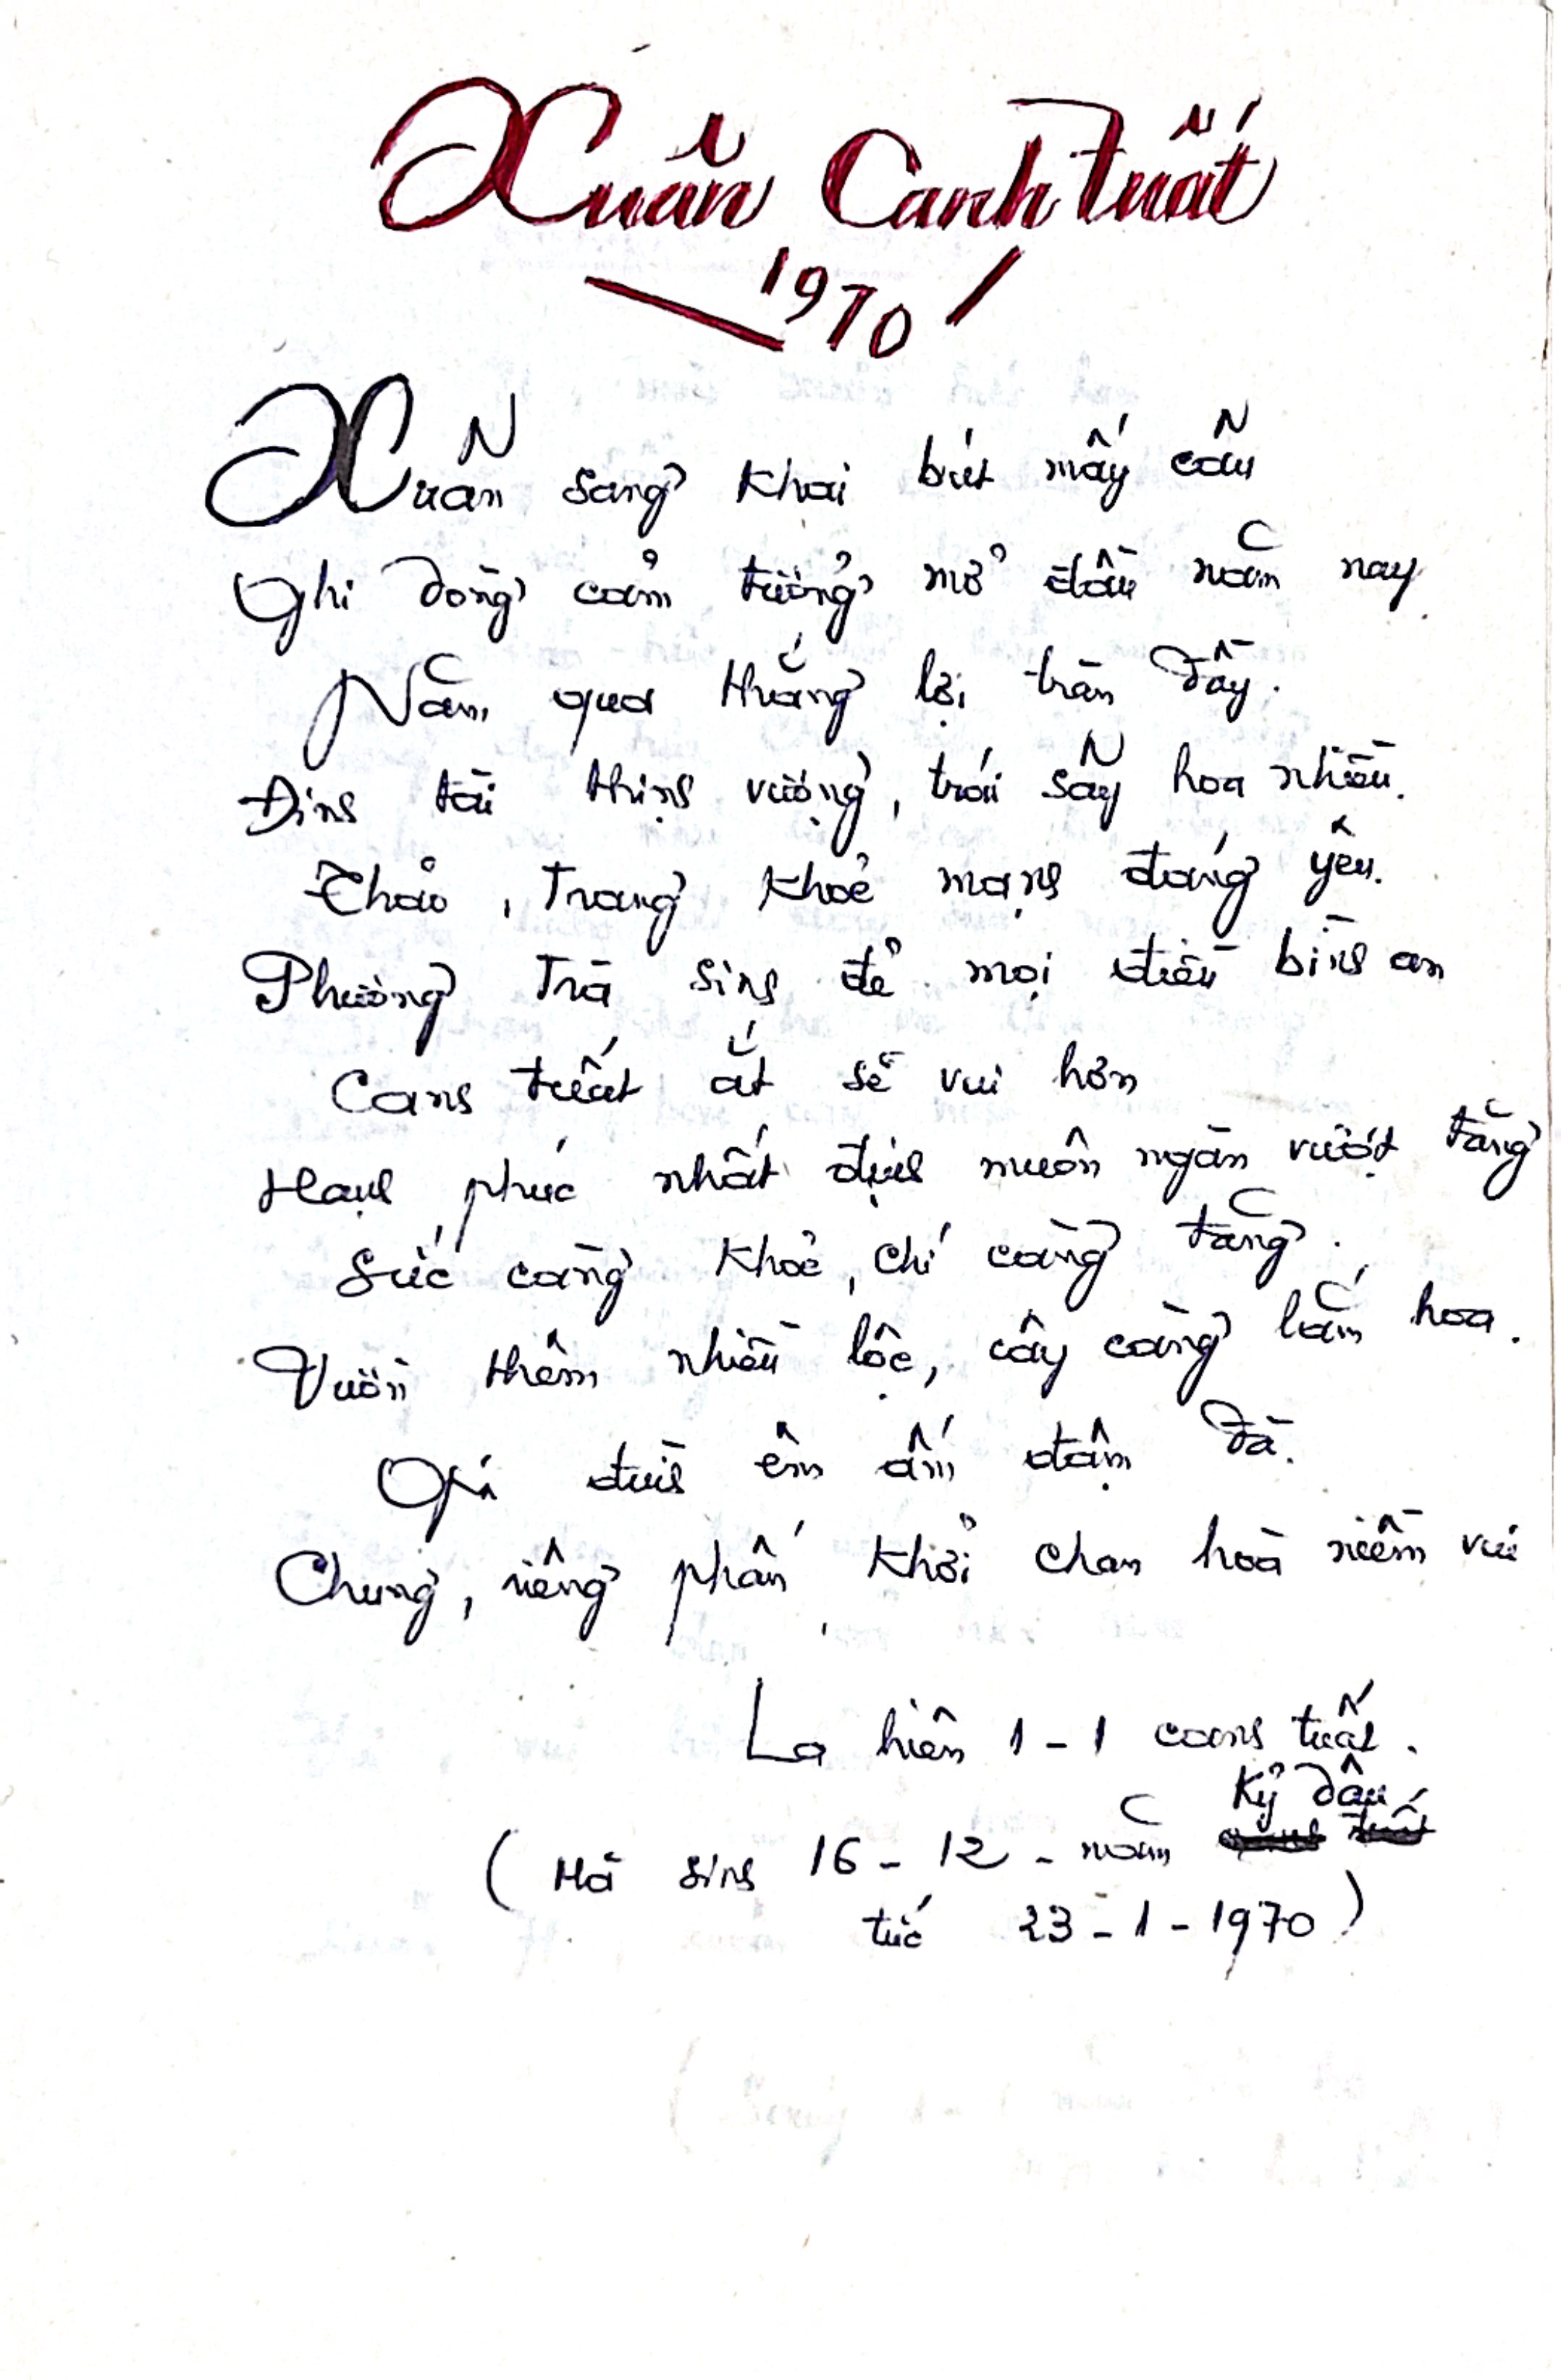 Xuân Canh Tuất
1970
Xuân sang khai bút mấy câu
Ghi dòng cảm tưởng mở đầu năm nay
Năm qua thắng lợi tràn đầy.
Đinh tài thịnh vượng, trái sây hoa nhiều.
Thảo, Trang khoẻ mạnh đáng yêu.
Phường Trà sinh đẻ mọi điều bình an
Canh tuất ắt sẽ vui hơn
Hạnh phúc nhất định muôn ngàn vượt tăng
Sức càng khoẻ, chí càng tăng.
Vườn thêm nhiều lộc, cây càng lắm hoa.
Gia đình êm ấm đậm đà.
Chung, riêng phấn khởi chan hoà niềm vui
La hiên 1-1 canh tuất.
Kỷ dậu
(Hà sinh 16-12-năm
tức 23-1-1970)